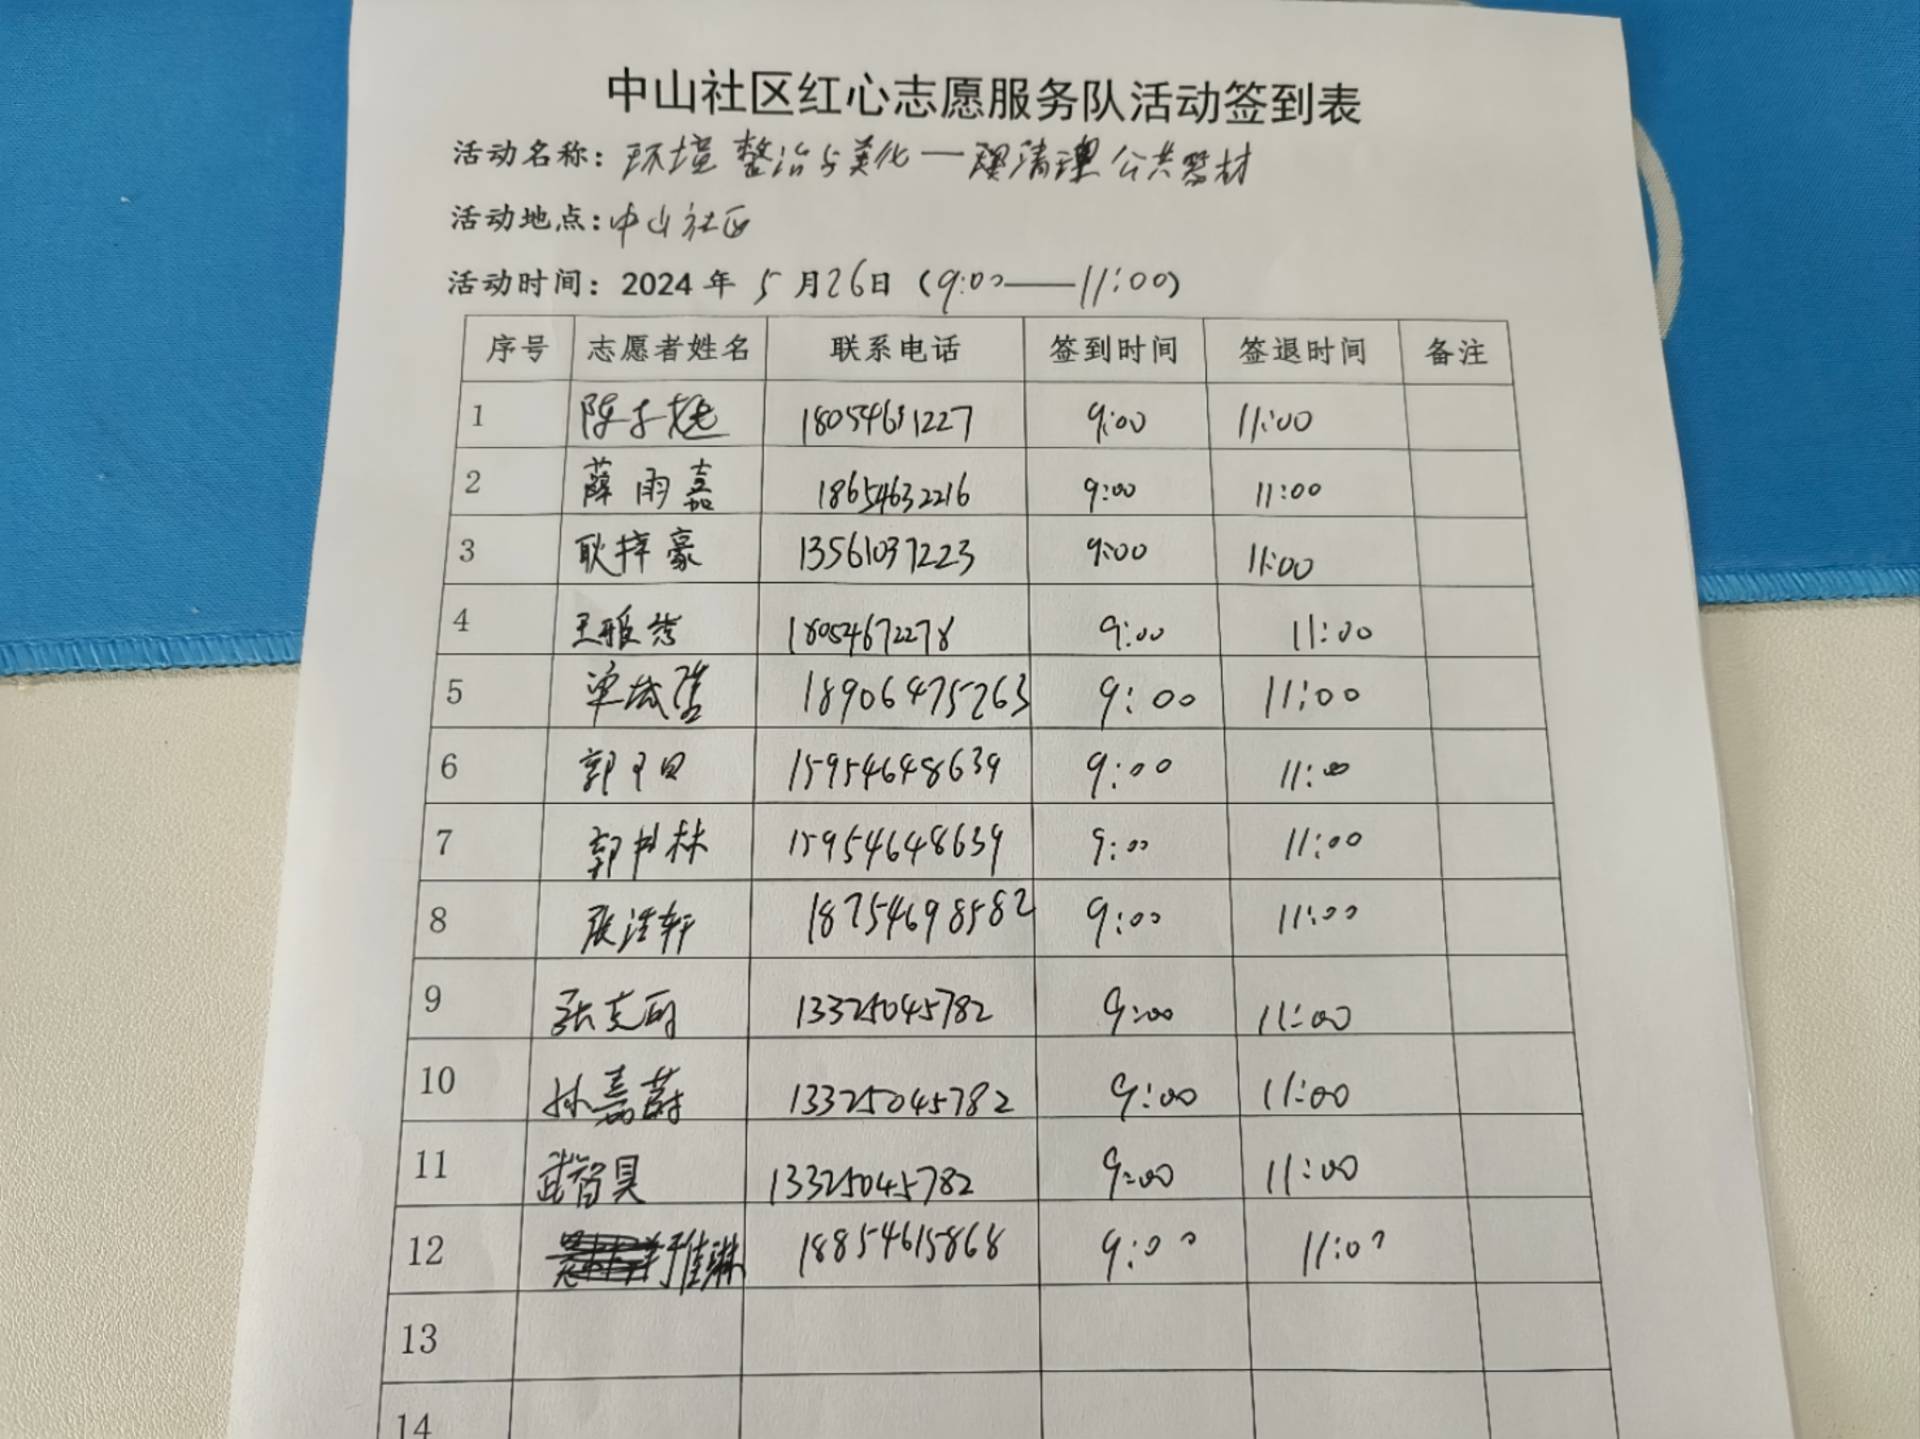 中山社区红心志愿服务队活动签到表
活动名称: 环境整治与美化—清理公共器材
活动地点: 中山社区
活动时间: 2024年5月26日 (9:00——11:00)
序号 志愿者姓名 联系电话 签到时间 签退时间 备注
1 陈 18054631227 9:00 11:00
2 薛雨嘉 18654632216 9:00 11:00
3 耿梓豪 13561037223 9:00 11:00
4 王雅 18054672278 9:00 11:00
5 18906475263 9:00 11:00
6 郭 15954648639 9:00 11:00
7 郭 林 15954648639 9:00 11:00
8 张浩轩 18754698582 9:00 11:00
9 张克 13325045782 9:00 11:00
10 孙嘉蔚 13325045782 9:00 11:00
11 武智昊 13325045782 9:00 11:00
12 于佳琳 18854615868 9:00 11:00
13
14